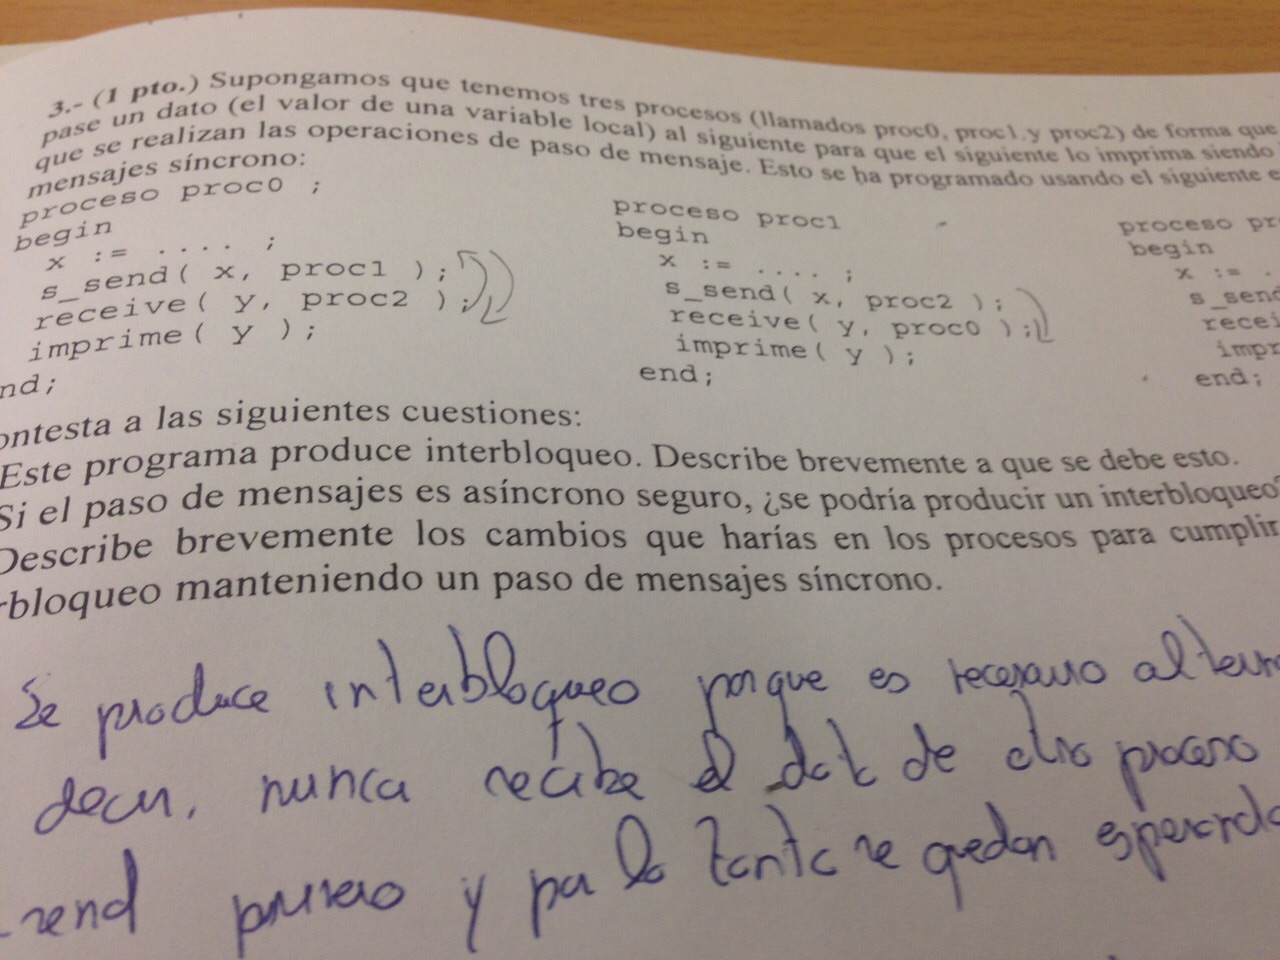 3.- (1 pto.) Supongamos que tenemos tres procesos (llamados proc0, proc1 y proc2) de forma que
pase un dato (el valor de una variable local) al siguiente para que el siguiente lo imprima siendo
que se realizan las operaciones de paso de mensaje. Esto se ha programado usando el siguiente e
mensajes síncrono:
proceso proc0 ;
begin
x := .... ;
s_send( x, proc1 );
receive( y, proc2 );
imprime( y );
nd;
proceso proc1
begin
x := .... ;
s_send( x, proc2 );
receive( y, proc0 );
imprime( y );
end;
proceso pr
begin
x := .
s_send
recei
impr
end;
ontesta a las siguientes cuestiones:
Este programa produce interbloqueo. Describe brevemente a que se debe esto.
Si el paso de mensajes es asíncrono seguro, ¿se podría producir un interbloqueo?
Describe brevemente los cambios que harías en los procesos para cumplir
rbloqueo manteniendo un paso de mensajes síncrono.
Se produce interbloqueo porque es necesario altern
decir, nunca recibe el dato de otro proceso
send primero y por lo tanto se quedan esperando